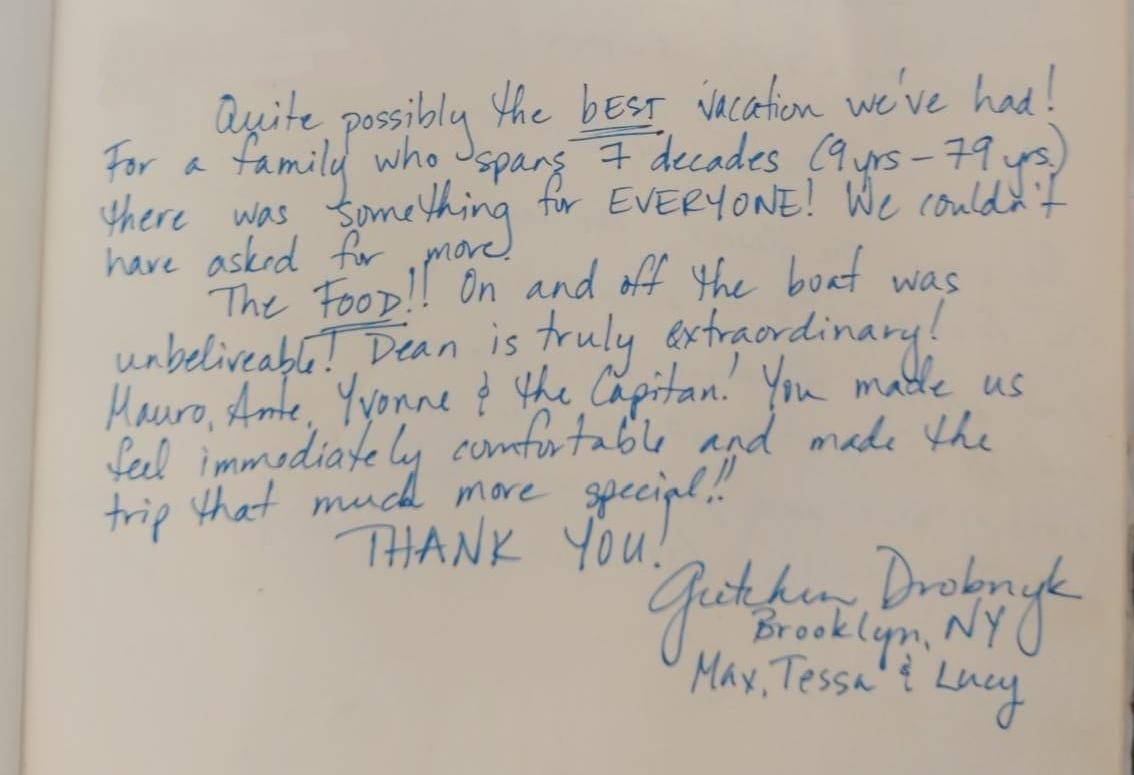 Quite possibly the bEST vacation we've had!
For a family who spans 7 decades (9yrs - 79 yrs.)
there was something for EVERYONE! We couldn't
have asked for more.
The FOOD!! On and off the boat was
unbeliveable! Dean is truly extraordinary!
Mauro, Ante, Yvonne & the Capitan! You made us
feel immediately comfortable and made the
trip that much more special!!
THANK YOU!
Gretchen Drobnyk
Brooklyn, NY
Max, Tessa & Lucy